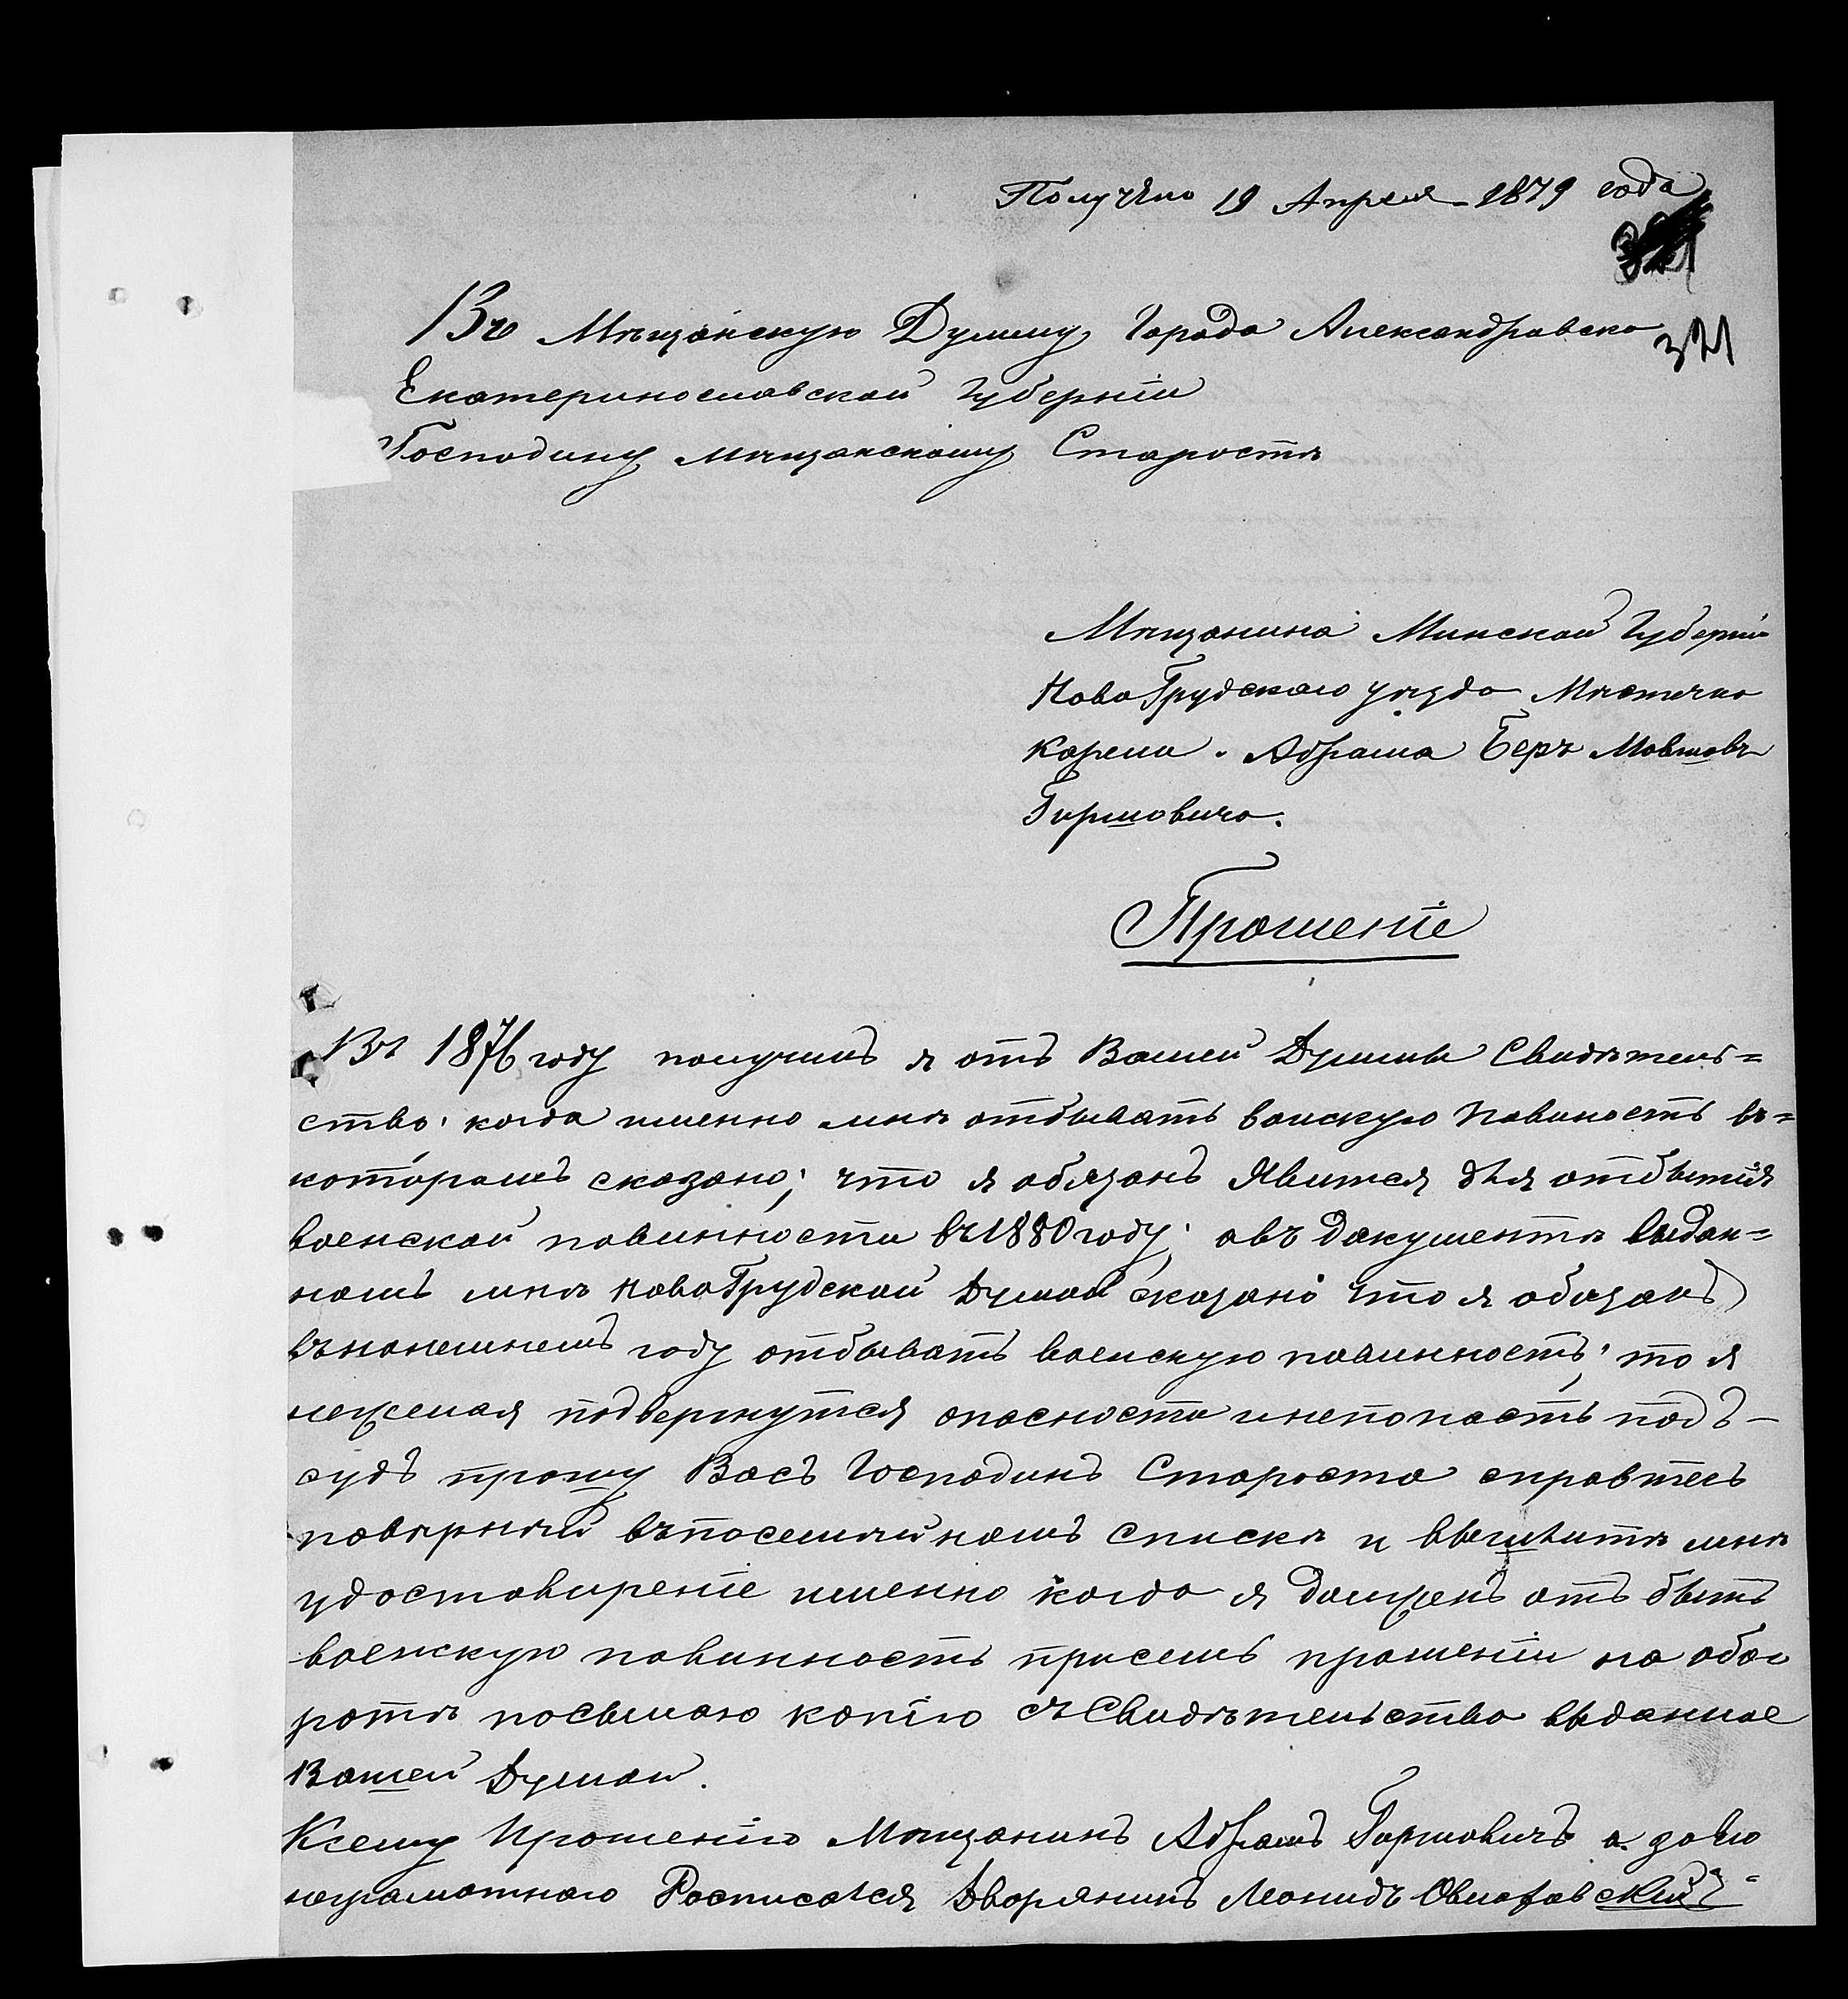 Получѣно 19 Апреля 1879 года
321
Въ Мѣщанскую Думму Города Александравска
Екатеринославской Губерніи
Господину мѣщанскому Старостѣ
Мѣщанина Минской Губерніи
НовоГрудскаго уѣзда Мѣстечка
Корели. Абрама Беръ Мовшовъ
Гиршовича.
Прошеніе
Въ 1876 году получилъ я отъ Вашей Думмы Свидѣтель=
ство; когда именно мнѣ отбывать воискую повиность въ=
которомъ сказано; что я обязанъ явится для отбытія
военской повинности въ 1880 году; авъ документѣ выдан=
номъ мнѣ НовоГрудской Думой сказано что я обязанъ
вънонешнемъ году отбывать воинскую повинность; то я
нежелая подвергнутся опасности инепопасть подъ-
судъ прошу Васъ Господинъ Староста справтесь
повѣрнѣй въпосемѣйномъ спискѣ и вышлитѣ мнѣ
удостовиреніе именно когда я должень отъ быть
военскую повинность присемъ прошеніи на обо
ротѣ посылаю копію съ Свидѣтельство выданное
Вашей Думой.
Ксему Прошенію Мѣщанинъ Абрамъ Гиршовичъ а заего
неграмотнаго Росписался Дворянинъ Леонидъ